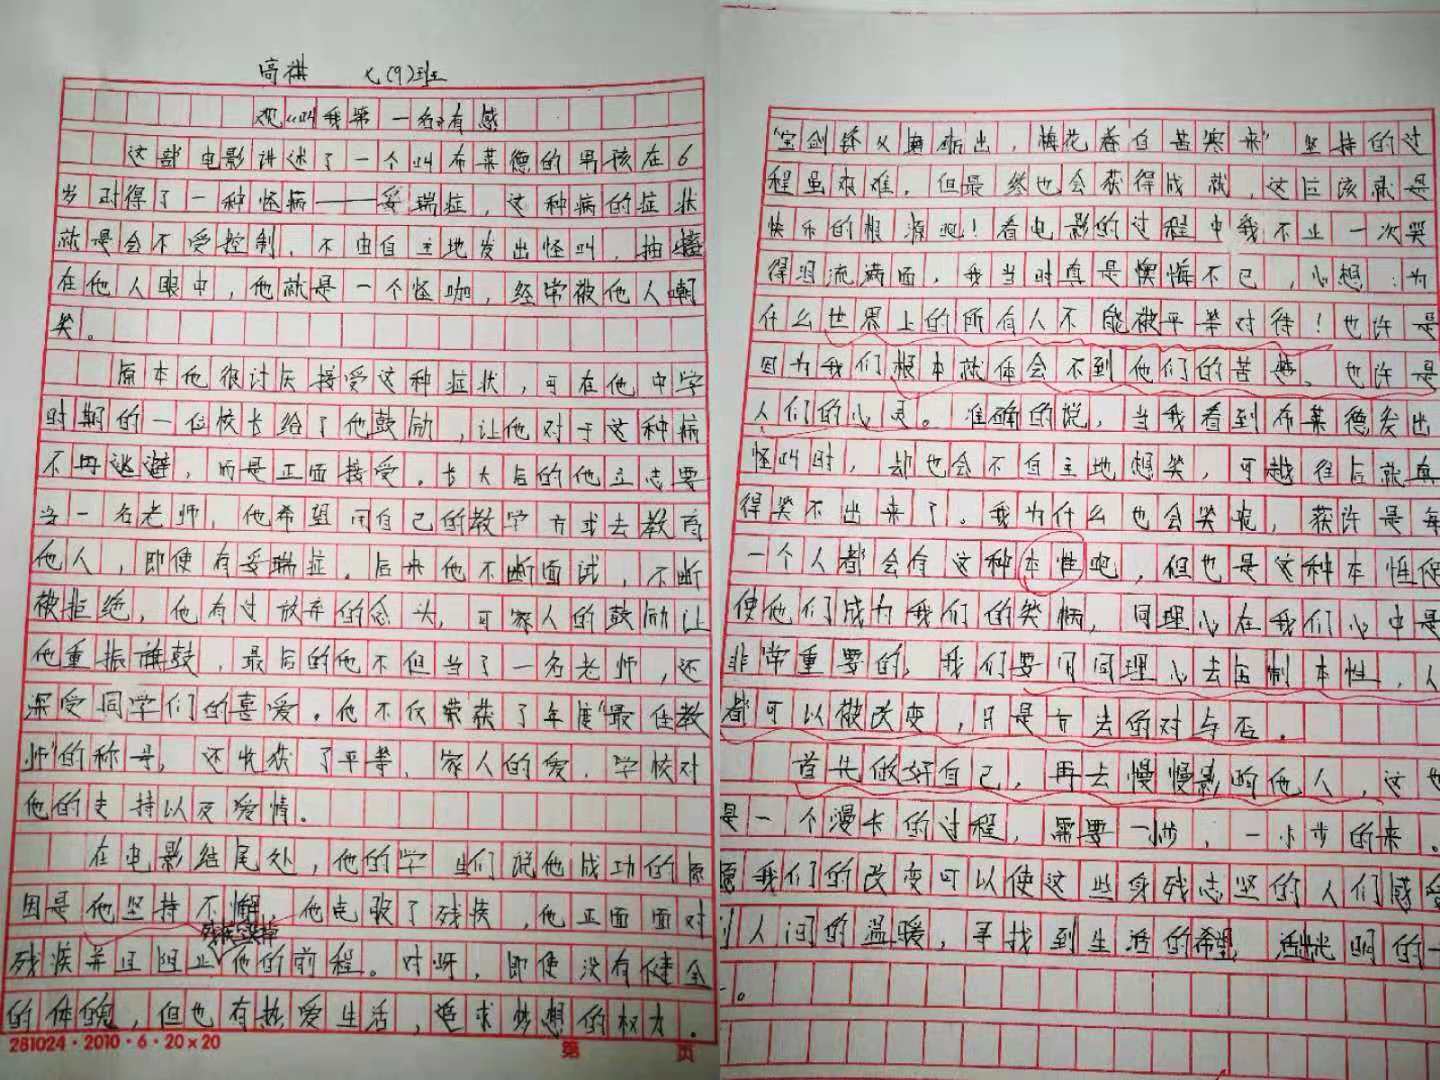 高祺 七(9)班
观“叫我第一名”有感
这部电影讲述了一个叫布莱德的男孩在6
岁时得了一种怪病——妥瑞症，这种病的症状
就是会不受控制、不由自主地发出怪叫，抽搐
在他人眼中，他就是一个怪咖，经常被他人嘲
笑。
原本他很讨厌接受这种症状，可在他中学
时期的一位校长给了他鼓励，让他对于这种病
不再逃避，而是正面接受。长大后的他立志要
当一名老师，他希望用自己的教学方式去教育
他人，即使有妥瑞症。后来他不断面试，不断
被拒绝，他有过放弃的念头，可家人的鼓励让
他重振旗鼓，最后的他不但当了一名老师，还
深受同学们的喜爱。他不仅荣获了年度“最佳教
师”的称号，还收获了平等、家人的爱、学校对
他的支持以及爱情。
在电影结尾处，他的学生们说他成功的原
因是他坚持不懈，他克服了残疾，他正面面对
残疾并且阻止残疾毁掉他的前程。对呀，即使没有健全
的体魄，但也有热爱生活，追求梦想的权力。
“宝剑锋从磨砺出，梅花香自苦寒来”坚持的过
程虽艰难，但最终也会获得成就，这应该就是
快乐的根源吧！看电影的过程中我不止一次哭
得泪流满面，我当时真是懊悔不已，心想：为
什么世界上的所有人不能被平等对待！也许是
因为我们根本就体会不到他们的苦楚、也许是
人们的心灵。准确的说，当我看到布莱德发出
怪叫时，却也会不自主地想笑，可越往后就真
得笑不出来了。我为什么也会笑呢，获许是每
一个人都会有这种本性吧，但也是这种本性促
使他们成为我们的笑柄，同理心在我们心中是
非常重要的，我们要用同理心去压制本性，人
都可以被改变，只是方法的对与否。
首先做好自己，再去慢慢影响他人，这也
是一个漫长的过程，需要一步，一小步的来。
愿我们的改变可以使这些身残志坚的人们感受
到人间的温暖，寻找到生活的希望，活出光明的一
。
281024·2010·6·20×20 第 页